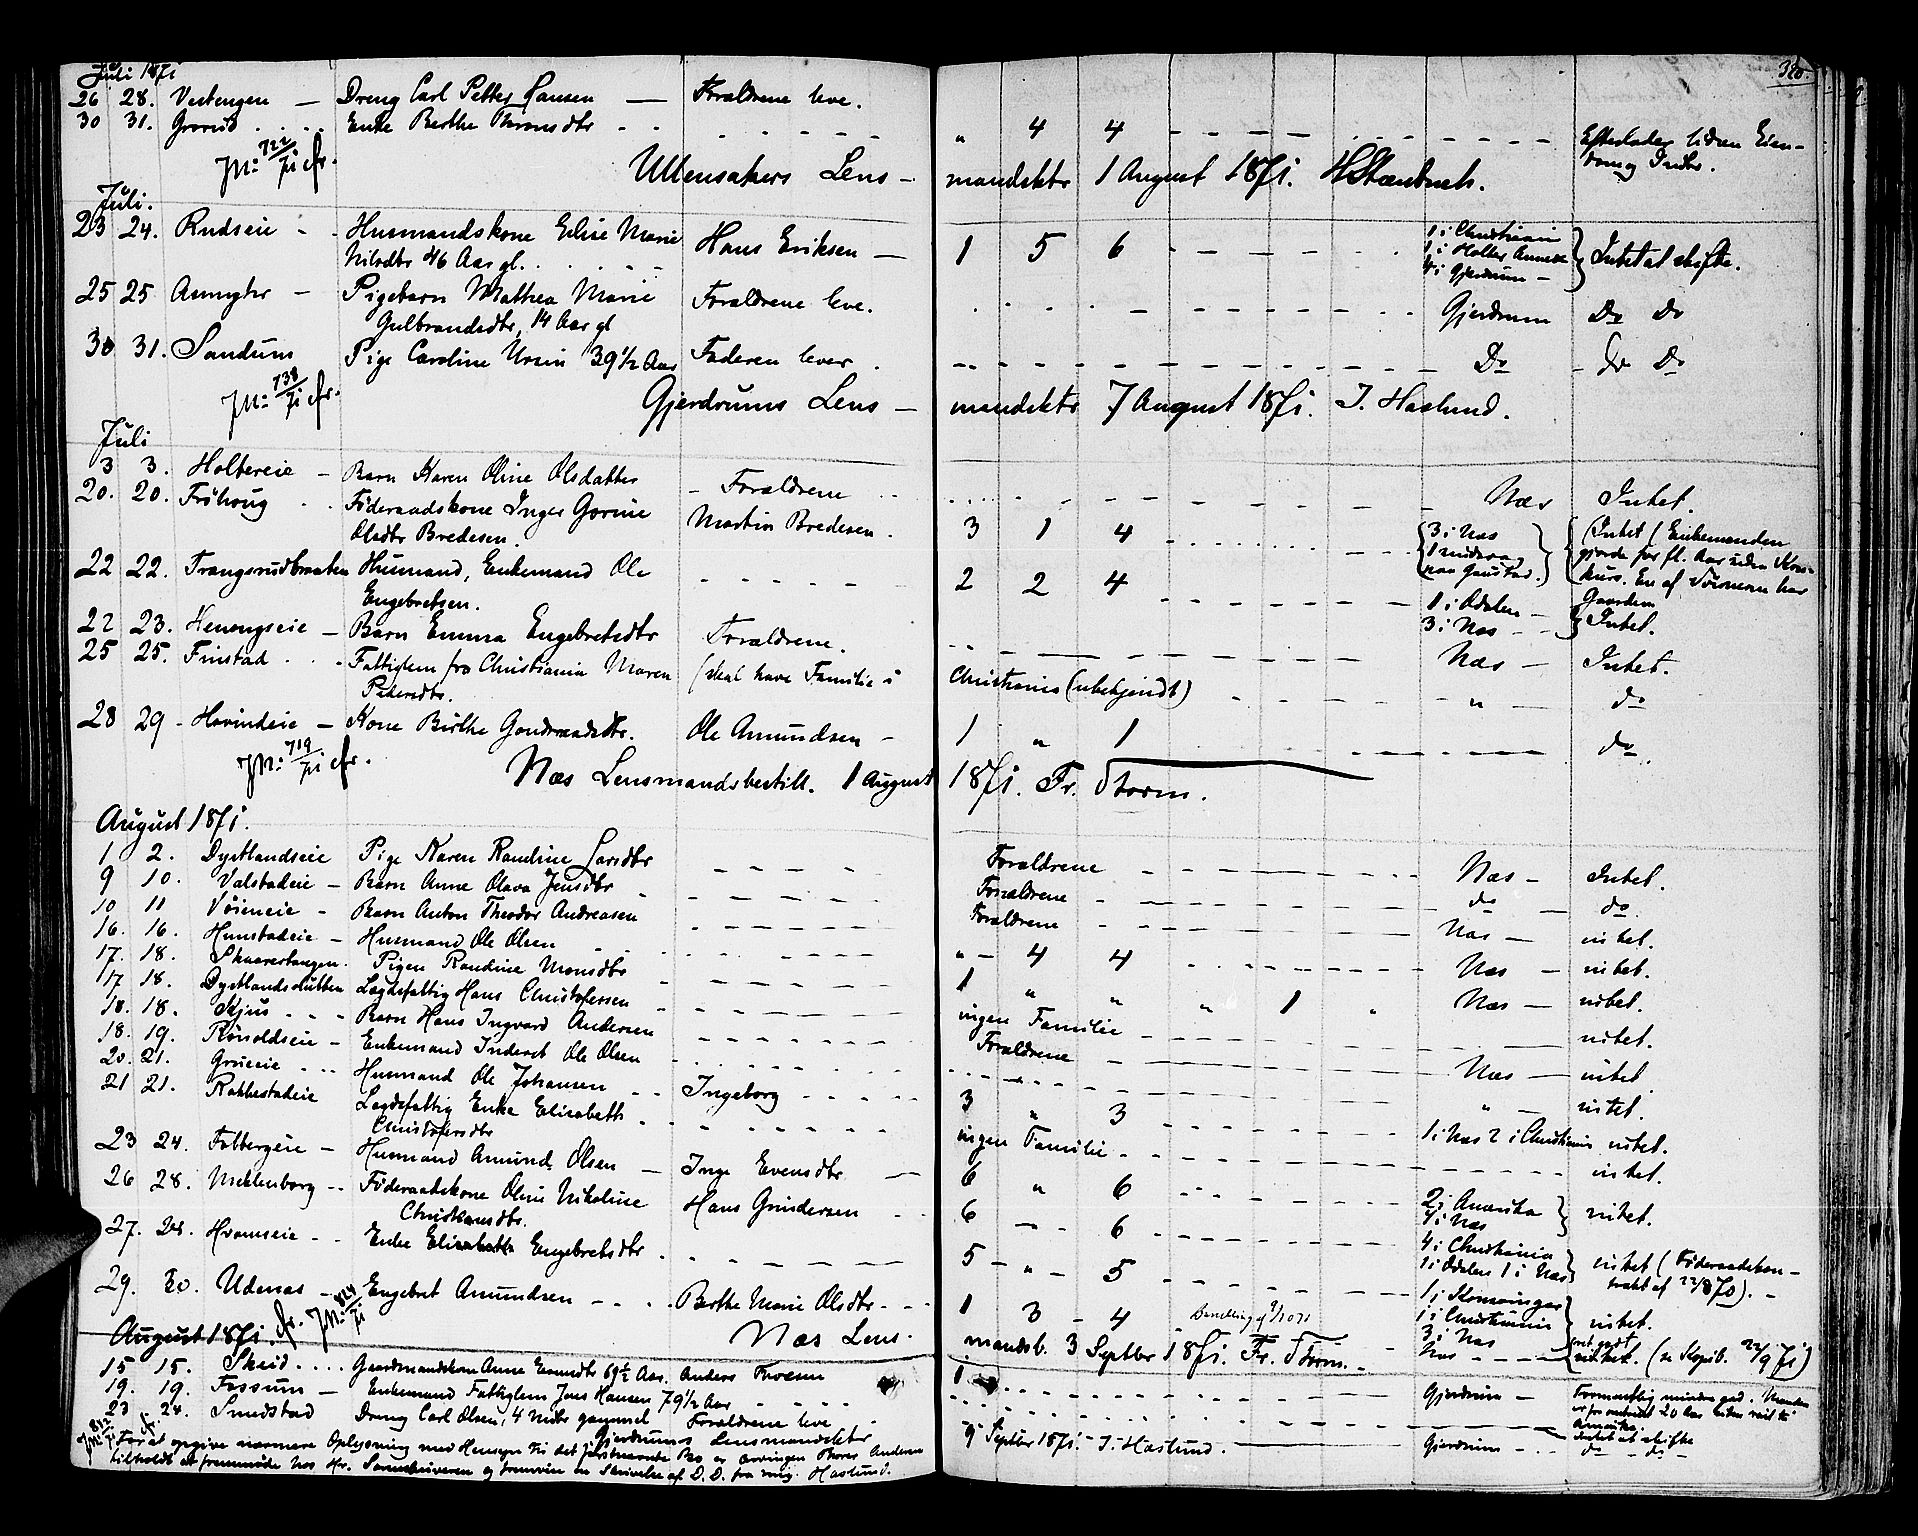 Juli 1871
320.
26 28. Vestengen — Dreng Carl Petter Hansen — Forældrene leve.
30 31. Enke Berthe " 4 4 Efterlader liden Eien-
dom og Intet.
JN: 722/71 fr.
Ullensakers Lens- mandsktr 1 August 1871.
Juli.
23 24. Rudseie - Husmandskone Eline Marie Hans Eriksen — 1 5 6 1 i Christiania
Nilsdtr 46 Aar gl. 1 i Holter Annex Intet at skifte.
4 i Gjerdrum —
25 25 — Pigebarn Mathea Marie Forældrene leve. Gjerdrum Do Do
Gulbrandsdtr, 14 Aar gl
30 31. Sandum Pige Caroline 39 1/2 Aar Faderen lever. Do - Do Do
JN: 738/71 fr.
Gjerdrums Lens — mandsktr 7 August 1871. J. Haslund.
Juli
3 3. Holtereie — Barn Karen Oline Olsdatter - Forældrene Næs Intet.
20. 20. Frøhoug Føderaadskone Inger Gorine Martin Bredesen. 3 1 4 3 i Næs (Intet (Enkemanden
Olsdtr Bredesen. 1 gjorde for fl. Aar siden Kon-
22 22. Trangsrudbraaten Husmand, Enkemand Ole 2 2 4 kurs. En af Sønnerne har
Engebretsen. 1 i Odalen — Gaarden
3 i Næs - - Intet.
22 23. — Barn Emma Engebretsdtr Forældrene. Næs — Intet.
25 25. Finstad Fattiglem fra Christiania Maren (skal have Familie i Christiania (ubekjendt) " — do
Pedersdtr.
28 29 - Hovindeie — Kone Birthe Ole Amundsen — 1 " 1 do
JN: 719/71 fr.
Næs Lensmandsbestill. 1 August 1871. Fr. Storm.
August 1871.
1 2. Dystlandseie Pige Karen Randine Larsdtr Forældrene Næs — Intet.
9 10. Valstadeie — Barn Anne Olava Jensdtr Forældrene do — do.
10 11 — Barn Anton Theodor Andreasen Forældrene Næs — intet.
16. 16. Hunstadeie — Husmand Ole Olsen " — 4 4 Næs — intet.
17. 18. Skaarertangen. Pigen Randine Monsdtr 1 " " " 1 " Næs — intet.
17 18. Dystlandsslutten Lægdsfattig Hans Christofersen ingen Familie intet.
18. 18. Skjus Barn Hans Ingvard Andersen Forældrene Næs — intet
18. 19. — Enkemand Inderst Ole Olsen " — intet.
20. 21. Grueeie Husmand Ole Johansen Ingeborg 3 " 3 1 i Næs 2 i Christiania intet.
21 21. Rakkestadeie Lægdsfattig Enke Elisabeth ingen Familie. intet.
Christofersdtr
23 24. Folbergeie — Husmand Amund Olsen — Inge Evensdtr — 6 " 6 2 i Amerika intet.
4 i Næs
26 28. Meklenborg Føderaadskone Oline Nikoline Hans Gundersen 6 — 6 4 i Christiania intet (Føderaadskon-
Christiansdtr. 1 i Odalen 1 i Næs trakt af 22/8 70).
27. 28. Hvamseie Enke Elisabeth Engebretsdtr 5 — " — 5 1 i Kongsvinger
1 i Christiania intet.
3 i Næs
29. 30. Udenæs — Engebret Amundsen Berthe Marie Olsdtr 1 3 - 4 Næs (se Skpsb. 22/9 71)
fr. JN: 824/71
Næs Lens- mandsb. 3 Septbr 1871. Fr. Storm.
August 1871.
15 15. Skeid Gaardmandskone Anne 69 1/2 Aar. Anders 1 Gjerdrum — Formentlig minder god. Manden
er for omtrent 20 Aar siden reist til
Amerika.
19. 19. Fossum — Enkemand Fattiglem Jens Hansen 79 1/2 Aar Intet at skifte
23 24. Smedstad Dreng Carl Olsen, 4 Mdr gammel Forældrene leve Gjerdrum do do
JN: 842/71 fr.
Gjerdrums Lensmandsktr 9 Septbr 1871. J. Haslund.
For at opgive nærmere Oplysning med Hensyn til det førstnævnte Bo er Arvingen Thorer Anders
tilholdt at fremmøde hos Hr. Sorenskriveren og fremvise en Skrivelse af D. D. fra mig. Haslund.